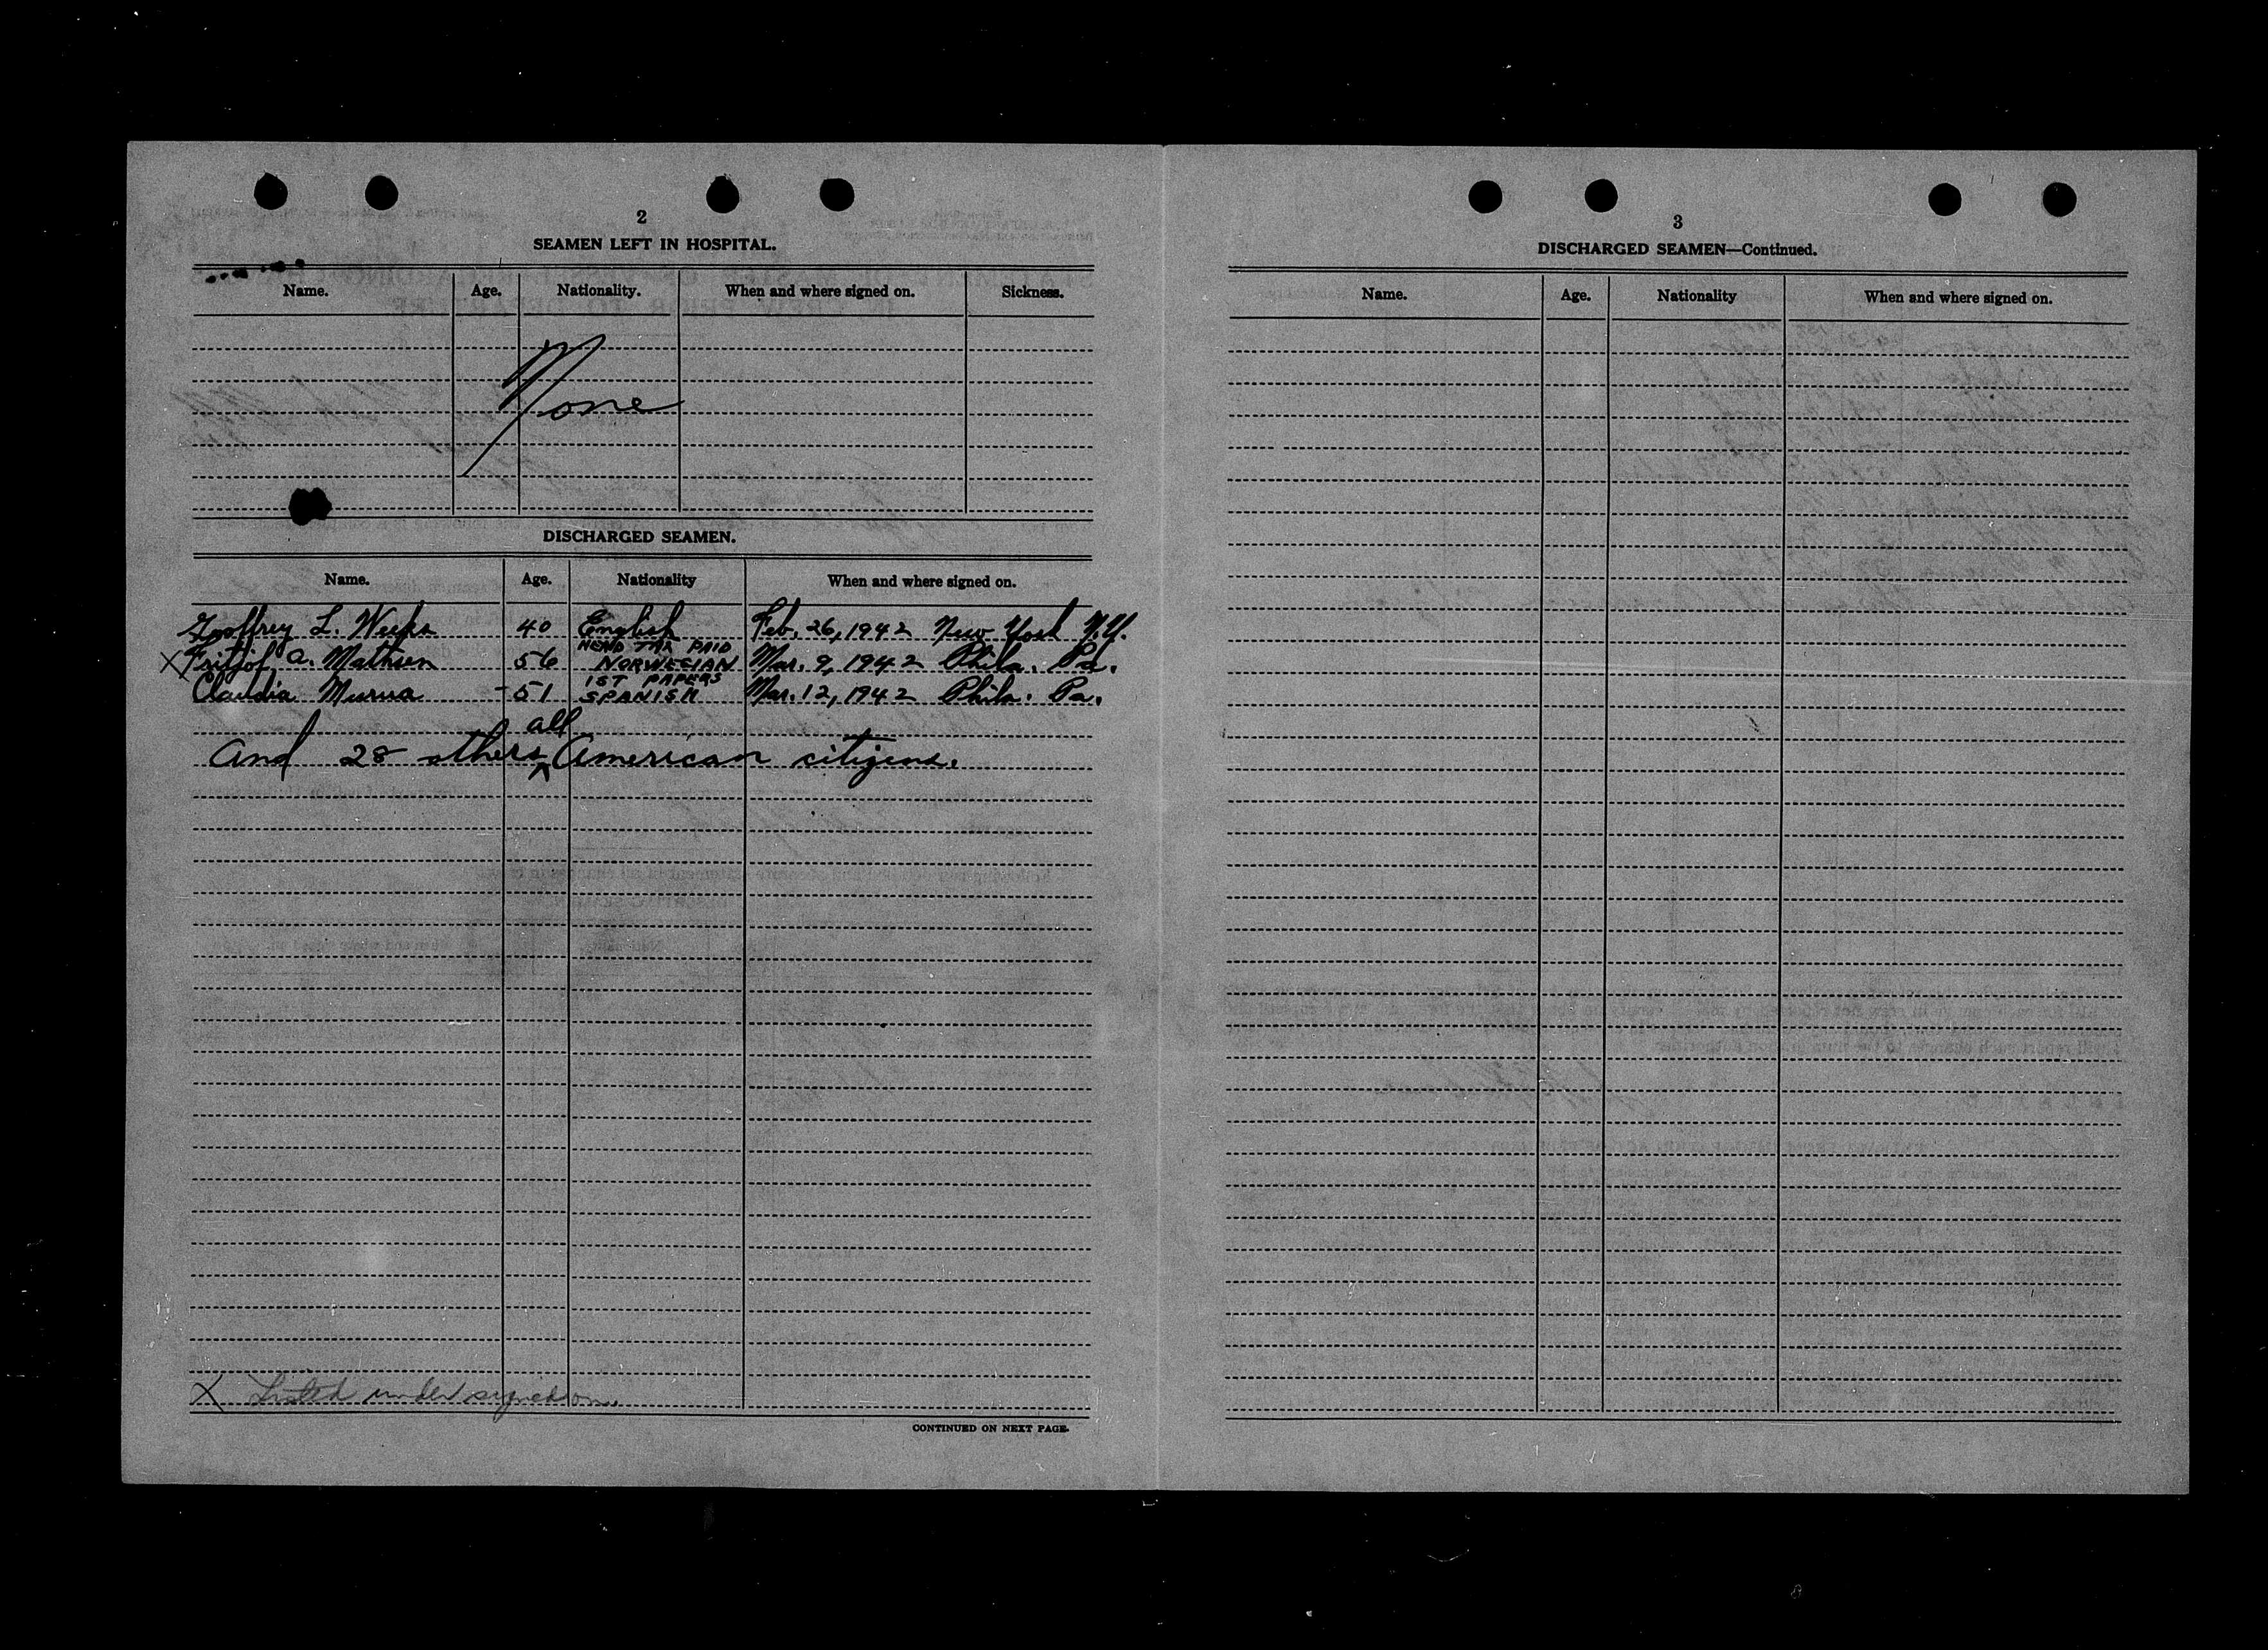 2
SEAMEN LEFT IN HOSPITAL.
Name. Age. Nationality. When and where signed on. Sickness.
None
DISCHARGED SEAMEN.
Name. Age. Nationality When and where signed on.
Geoffrey L. Weeks 40 English Feb. 26, 1942 New York N.Y.
HEAD TAX PAID
X Fritjof A. Mathsen 56 NORWEGIAN Mar. 9, 1942 Phila. Pa.
1ST PAPERS
Claudia Murua - 51 SPANISH Mar. 12, 1942 Phila. Pa.
all
And 28 others ^ American citizens.
X Listed under signed on.
CONTINUED ON NEXT PAGE.
3
DISCHARGED SEAMEN—Continued.
Name. Age. Nationality When and where signed on.